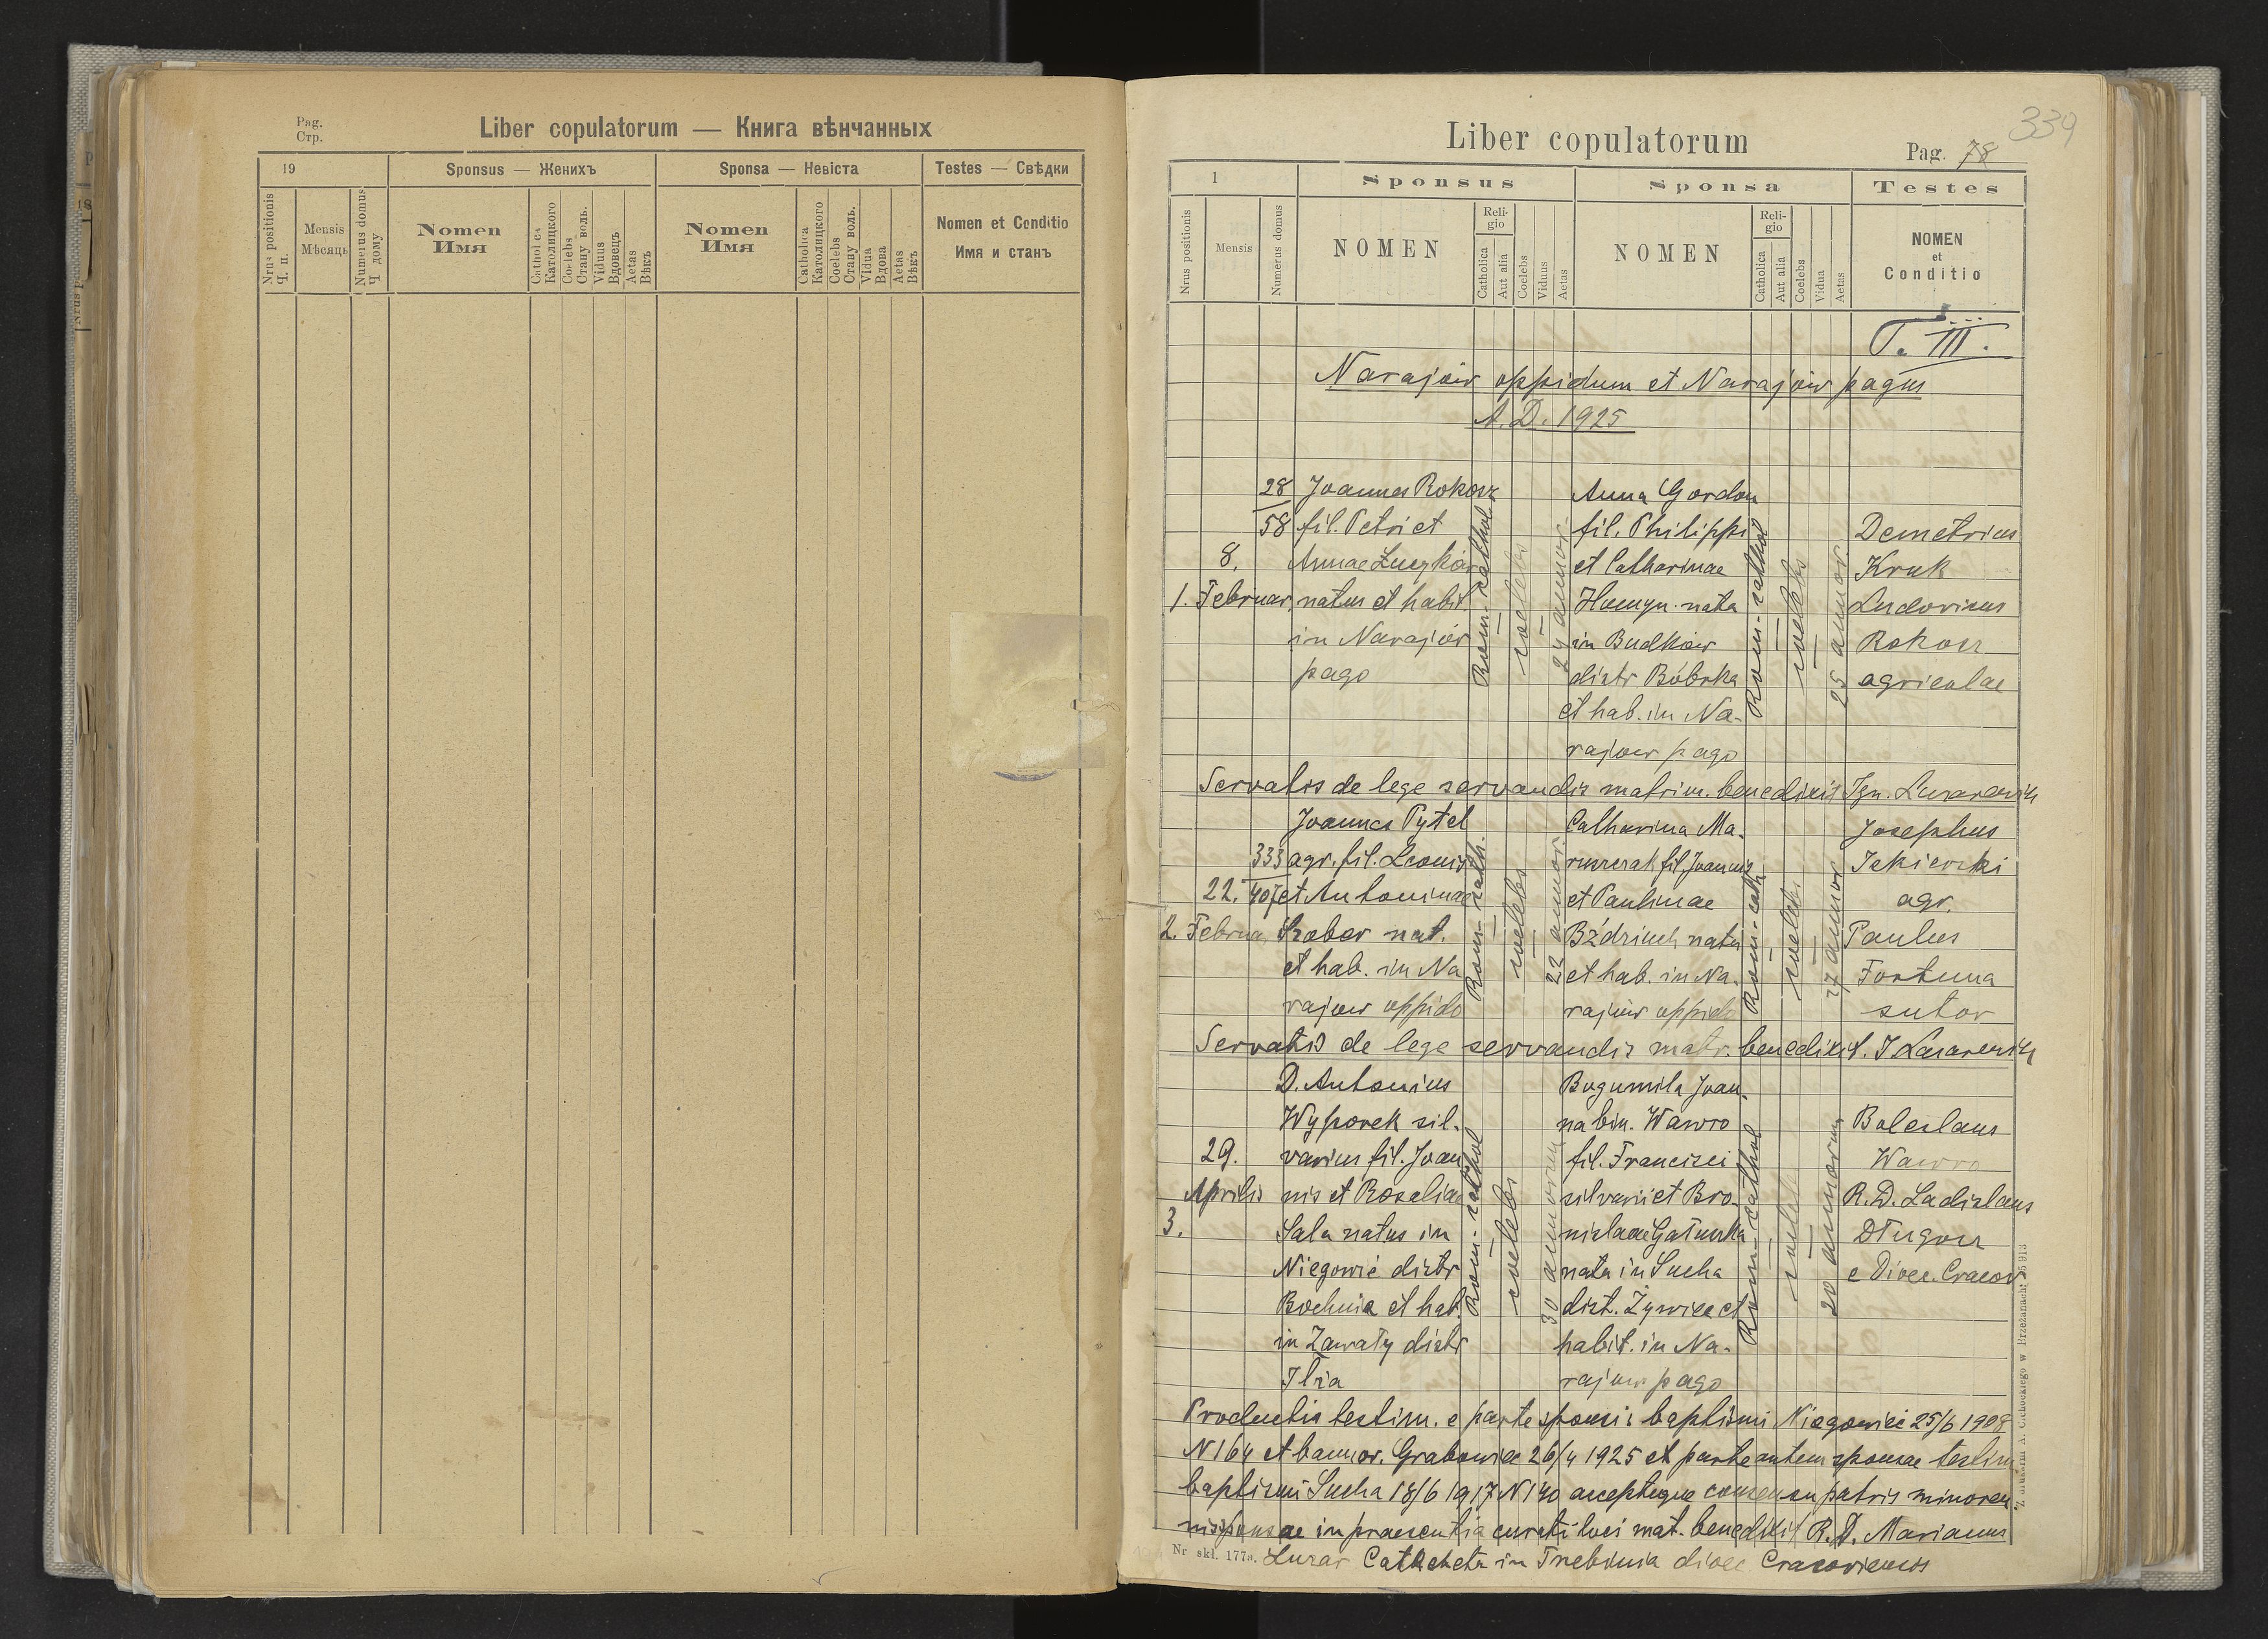 Pag.
Стр.
Liber copulatorum — Книга вѣнчанных
19
Sponsus — Женихъ
Sponsa — Невіста
Testes — Свѣдки
Nrus positionis
Ч. п.
Mensis
Мѣсяць
Numerus domus
Ч дому
Nomen
Имя
Catholica
Католицкого
Coelebs
Стану воль.
Viduus
Вдовець
Aetas
Вѣкъ
Nomen
Имя
Catholica
Католицкого
Coelebs
Стану воль.
Vidua
Вдова
Aetas
Вѣкъ
Nomen et Conditio
Имя и станъ
339
Liber copulatorum
Pag. 78
1
Sponsus
Sponsa
Testes
Nrus positionis
Mensis
Numerus domus
NOMEN
Religio
Catholica
Aut alia
Coelebs
Viduus
Aetas
NOMEN
Religio
Catholica
Aut alia
Coelebs
Vidua
Aetas
NOMEN
et
Conditio
T. III.
Narajów oppidum et Narajów pagus
A. D. 1925
1.
8.
Februar.
28
58
Joannes Rokosz
fil. Petri et
Annae
natus et habit.
in Narajów
pago
Rom. cathol.
coelebs
24 annor.
Anna Gordon
fil. Philippi
et Catharinae
nata
in Budków
distr Bóbrka
et hab. in Na-
rajow pago
Rom. cathol
coelebs
25 annor
Demetrius
Kruk
Ludovicus
Rokosz
agricolae
Servatis de lege servandis matrim. benedixit Ign. Lazarewicz
2.
22.
Februa.
333
407
Joannes Pytel
agr. fil. Leonis
et Antoninae
Szabor nat.
et hab. in Na
rajow oppido
Rom. cath.
coelebs
22 annor.
Catharina Ma-
fil. Joannis
et Paulinae
Bździuch nata
et hab. in Na-
rajów oppido
Rom. cath
coelebs
27 annor
Josephus
agr.
Paulus
Fortuna
sutor
Servatis de lege servandis matr. benedixit. I Lazarewicz
3.
29.
Aprilis
D. Antonius
Wyporek sil-
varius fil. Joan
nis et Rosaliae
Sala natus in
Niegowić distr
Bochnia et hab.
in Zawały distr
Ilża
Rom. cathol
coelebs
30 annorum
Bogumila Joan-
na bin. Wawro
fil. Francisci
silvarii et Bro-
nislaae Gałuszka
nata in Sucha
dist. Żywiec et
habit. in Na-
rajow pago
Rom. cathol
coelebs
20 annorum
Boleslaus
Wawro
R. D. Ladislaus
Długosz
e Dioec. Cracov.
Productis testim. e parte sponsi: baptismi Niegowici 25/6 1908
N 164 et bannor. Grabowiec 26/4 1925 et parte autem sponsae testim
baptismi Sucha 18/6 1917 N 140 acceptoque consensu patris minoren-
nis sponsae in praesentia curati loci mat. benedixit R. D. Marianus
Luzar Catecheta in Trzebinia dioec Cracoviensis
Nr skł. 177a.
Z drukarni A. Cichockiego w Brzeżanach